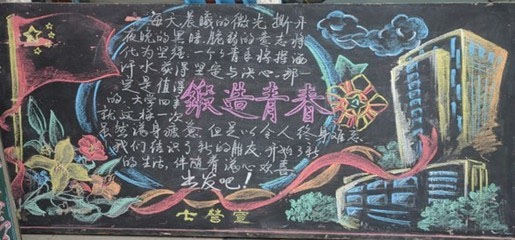 每天晨曦的微光撕开
夜晚的黑暗脆弱的意志将
化为坚强一个青春将挥洒
汗水变得坚定与决心那一
定是值得
的大学四年
锻造青春
就这样一次
虽然满身疲惫但是以令人终身难忘
我们结识了新的朋友开始了新
的生活伴随着滚心欢喜
出发吧！
七营宣